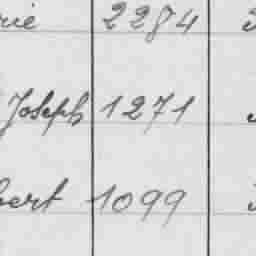 rie 2284
Joseph 1271
bert 1099